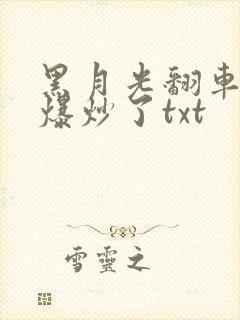 黑月光翻車
爆炒了txt
雪靈之